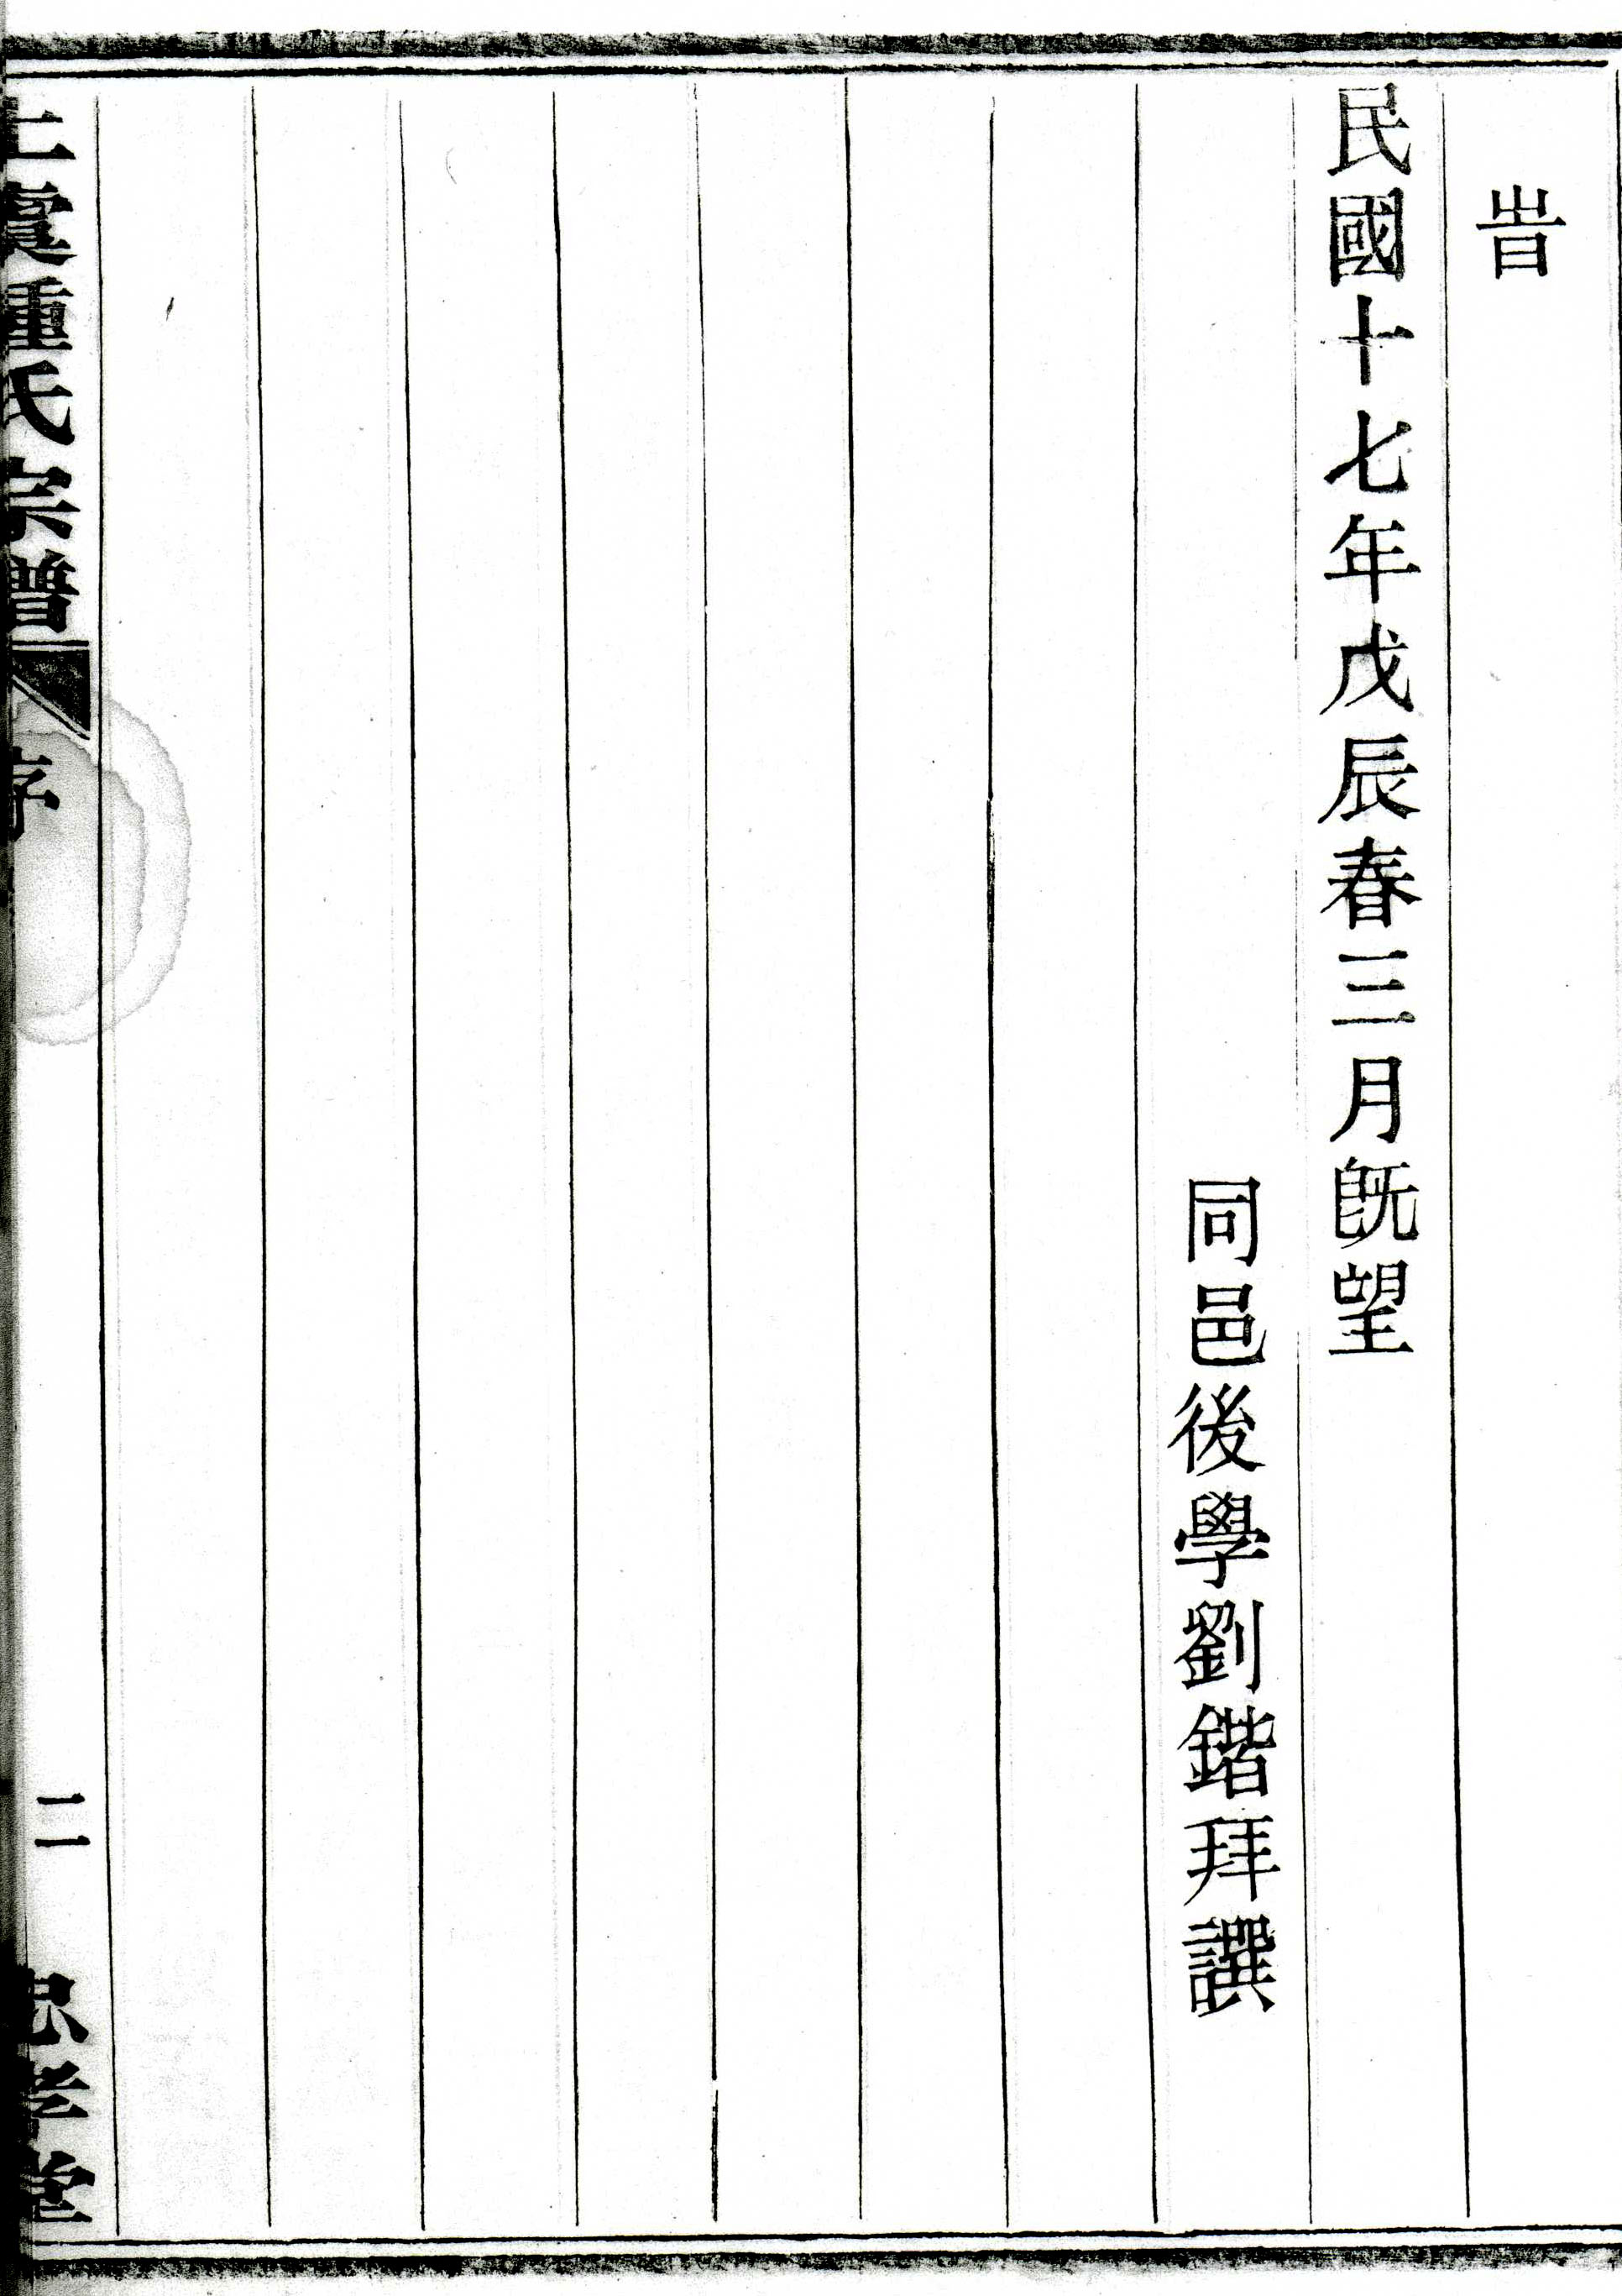 旹
民國十七年戊辰春三月既望
同邑後學劉鍇拜譔
上虞鍾氏宗譜
序
二
忠孝堂